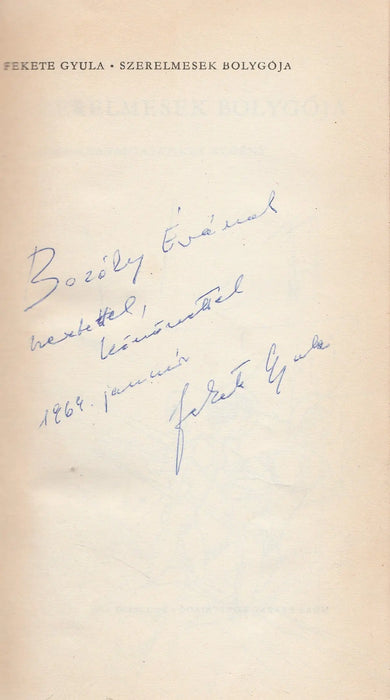 FEKETE GYULA • SZERELMESEK BOLYGÓJA
SZERELMESEK BOLYGÓJA
Évának
szeretettel,
köszönettel
1964. január
Fekete Gyula